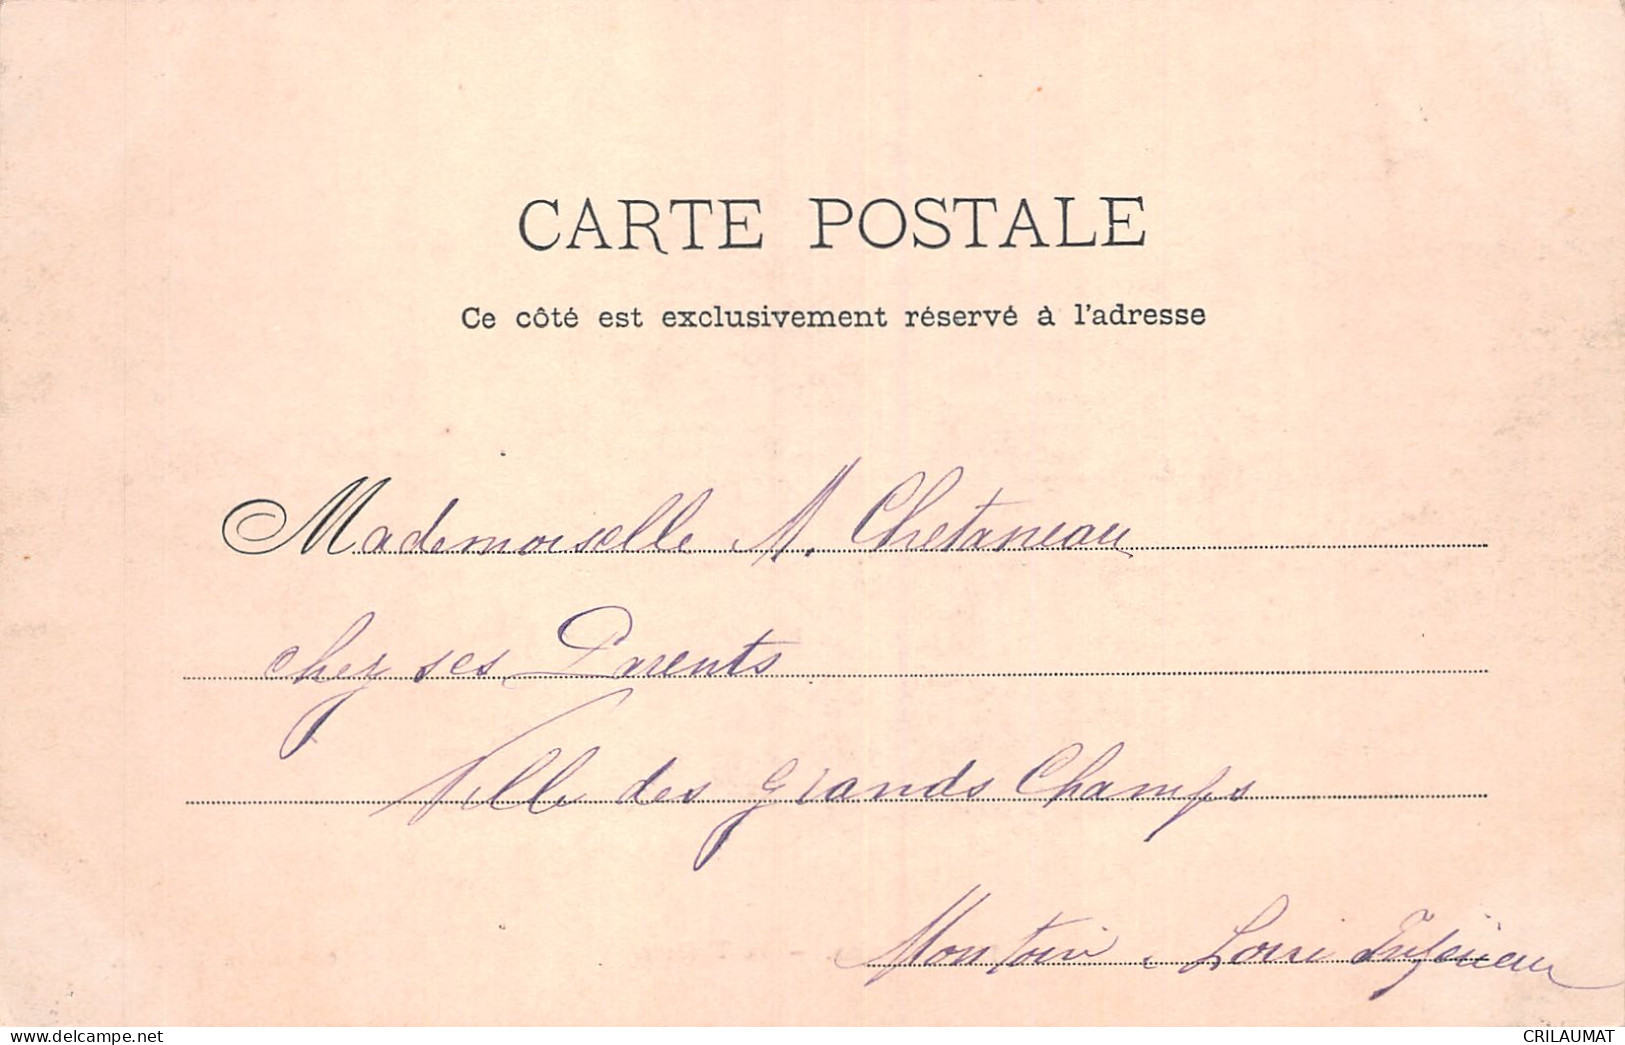 CARTE POSTALE
Ce côté est exclusivement réservé à l'adresse
Mademoiselle A. Chetaneau
chez ses Parents
Ville des grands Champs
Montoir Loire Inférieure
www.delcampe.net
CRILAUMAT